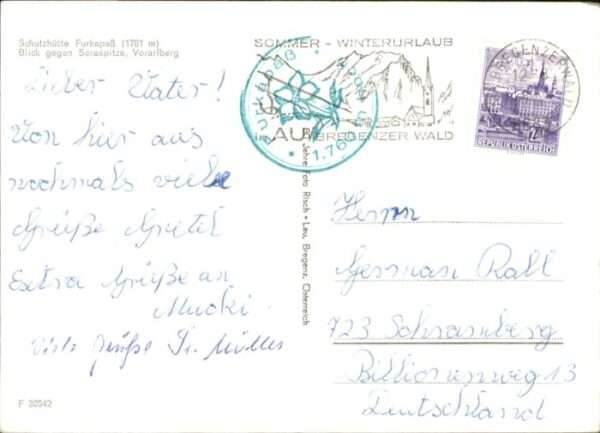 Schutzhütte Furkapaß (1761 m)
Blick gegen Seraspitze, Vorarlberg
Lieber Vater!
Von hier aus
nochmals viele
Grüße Gretel
Extra Grüße an
Mucki.
Viele Grüße Fr. Müller
F 30542
SOMMER - WINTERURLAUB
AU
BREGENZER WALD
1.76
BREGENZERWALD
REPUBLIK ÖSTERREICH
Jahre Foto Risch - Lau, Bregenz, Österreich
Herrn
German
723 Schramberg
13
Deutschland